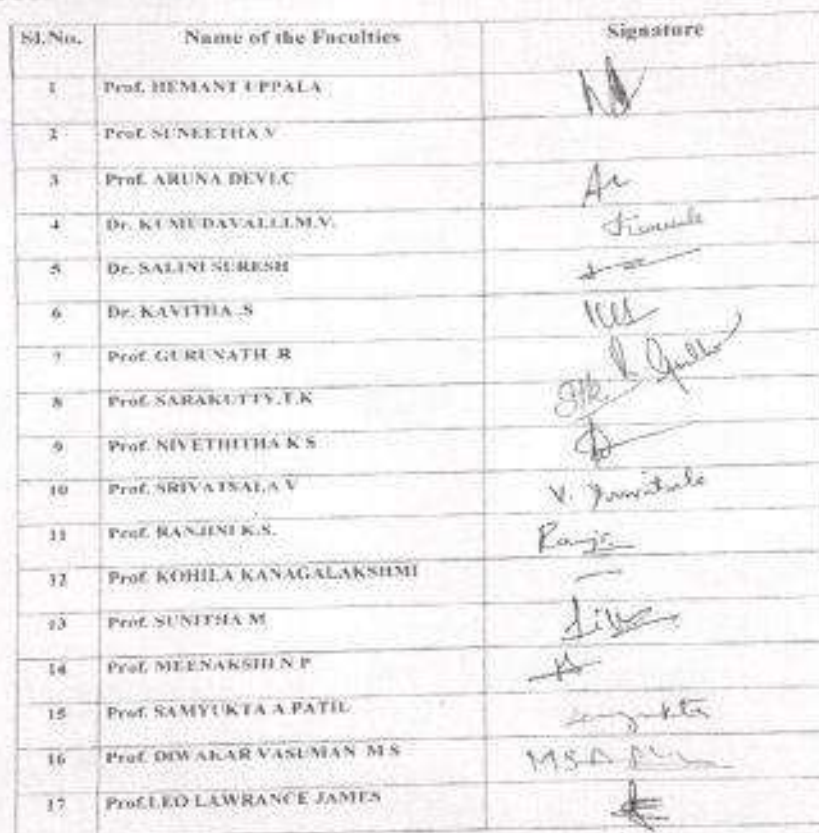 Sl.No. Name of the Faculties Signature
1 Prof. HEMANT UPPALA
2 Prof. SUNEETHA V
3 Prof. ARUNA DEVI.C
4 Dr. KUMUDAVALLI.M.V.
5 Dr. SALINI SURESH
6 Dr. KAVITHA .S
7 Prof. GURUNATH R
8 Prof. SARAKUTTY.T.K
9 Prof. NIVETHITHA K S
10 Prof. SRIVATSALA V
11 Prof. RANJINI K.S.
12 Prof. KOHILA KANAGALAKSHMI
13 Prof. SUNITHA M
14 Prof. MEENAKSHI N P
15 Prof. SAMYUKTA A PATIL
16 Prof. DIWAKAR VASUMAN M S
17 Prof.LEO LAWRANCE JAMES